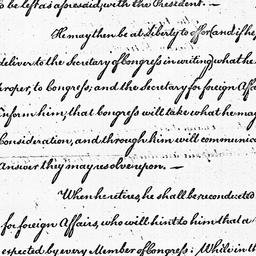 to be left as aforesaid, with the President. —
He may then be at Liberty to offer (and if he,
deliver to the Secretary of Congress in writing what he
proper, to Congress; and the Secretary for foreign Affa
inform him, that Congress will take what he may
Consideration, and through him will communica
Answer they may resolve upon. —
When he retires, he shall be reconducted
for foreign Affairs, who will hint to him that a
expected by every Member of Congress; While in th